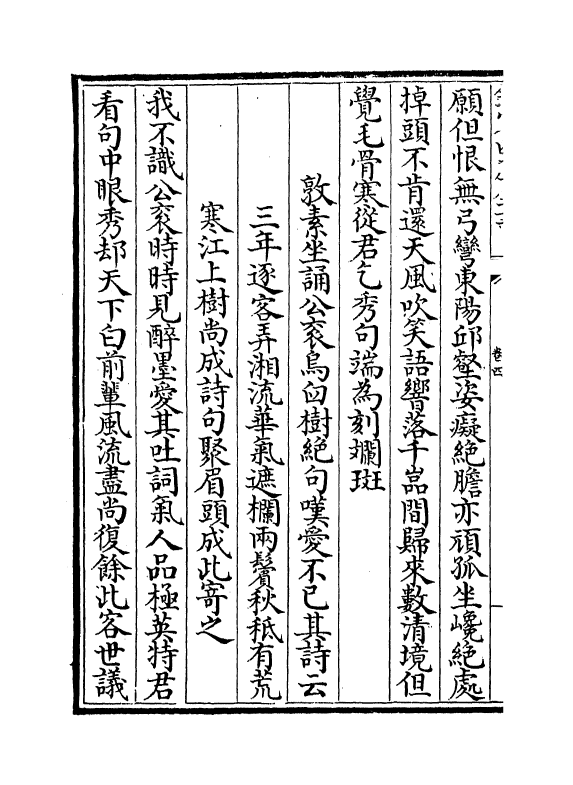 願但恨無弓彎東陽邱壑姿癡絶膽亦頑孤坐巉絶處
掉頭不肯還天風吹笑語響落千嵓間歸來數清境但
覺毛骨寒從君乞秀句端為刻斕斑
敦素坐誦公衮烏臼樹絶句嘆愛不已其詩云
三年逐客弄湘流華氣遮欄兩鬢秋秪有荒
寒江上樹尚成詩句聚眉頭成此寄之
我不識公衮時時見醉墨愛其吐詞氣人品極英特君
看句中眼秀却天下白前輩風流盡尚復餘此客世議
卷四